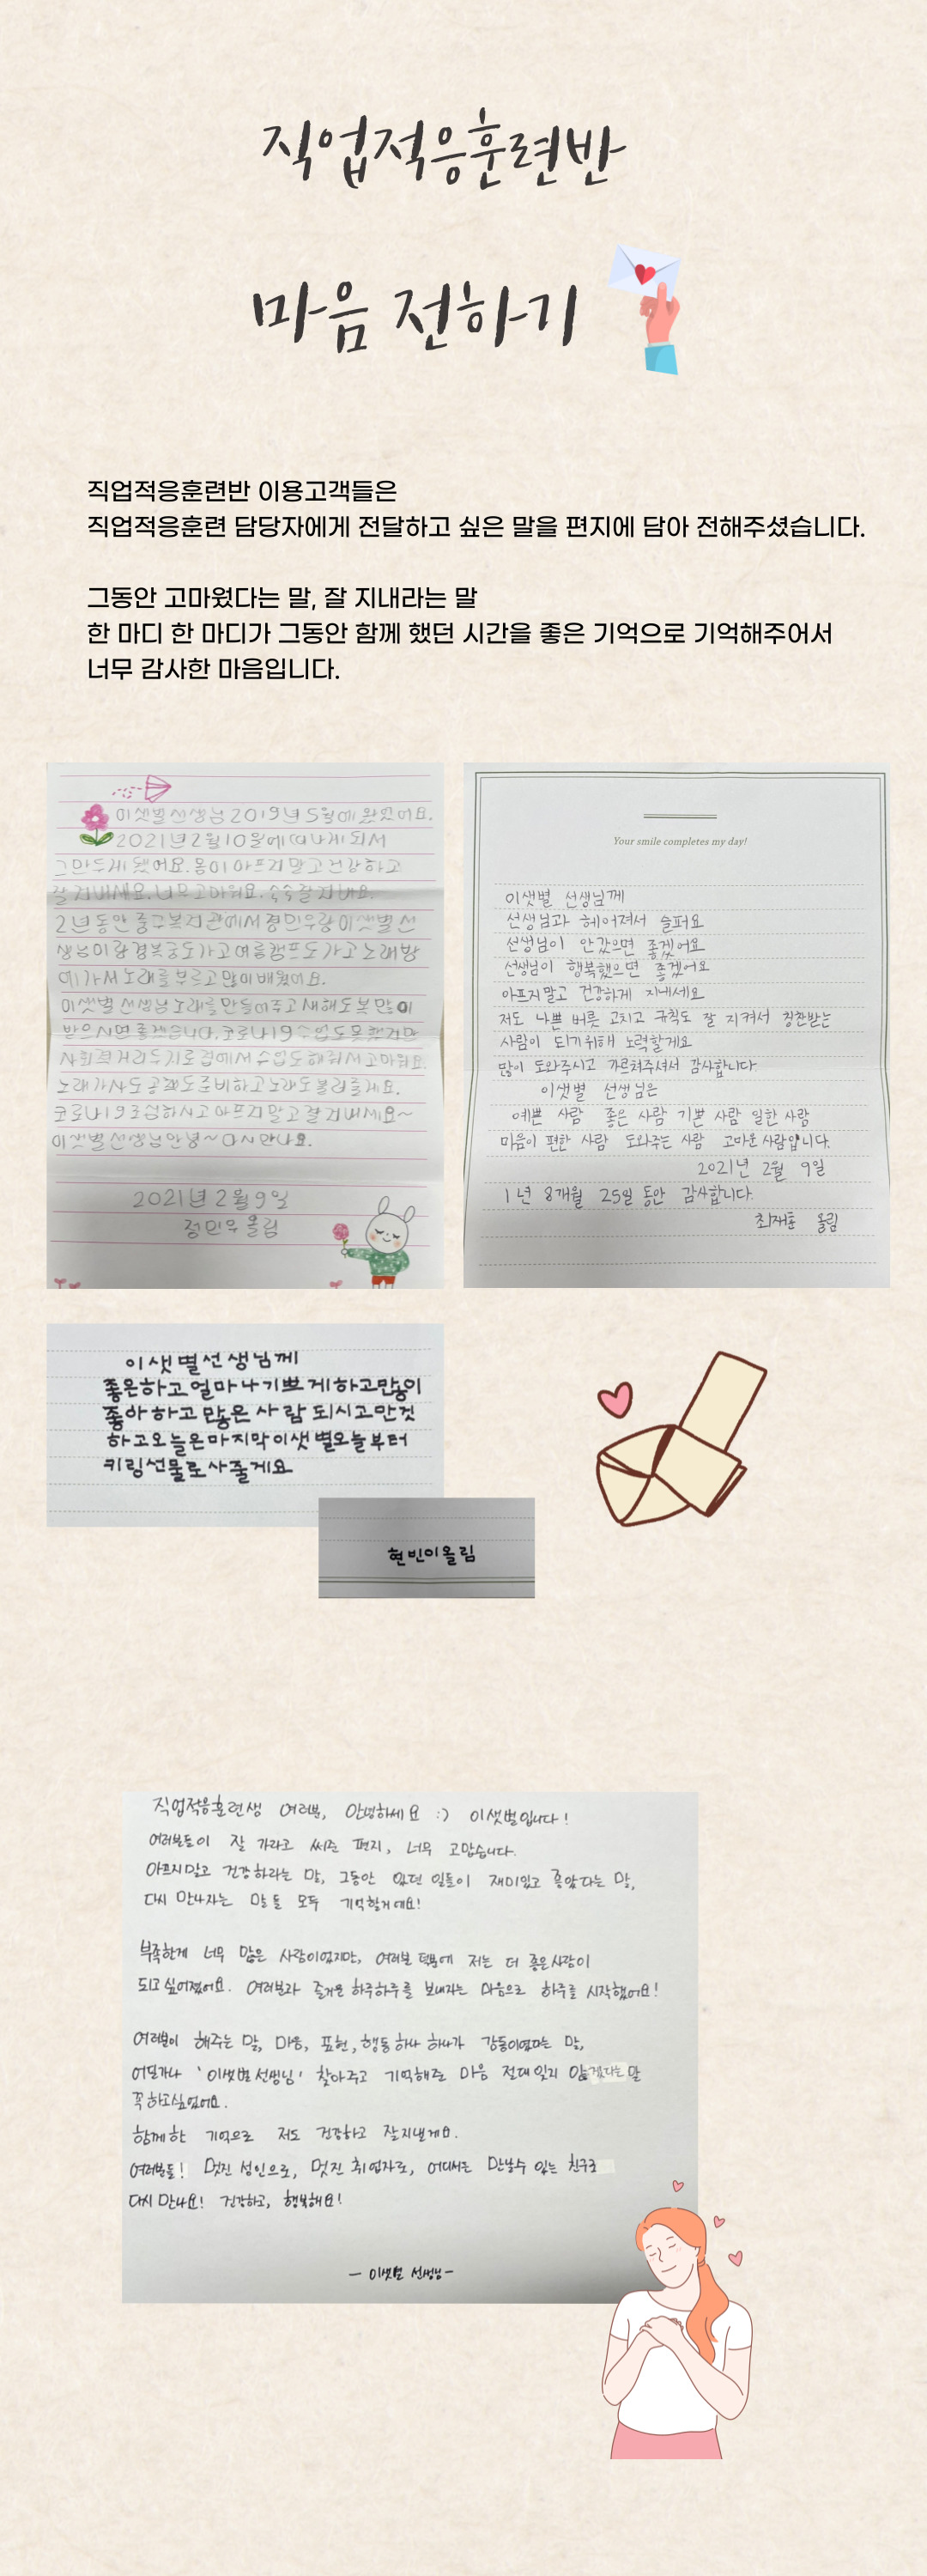 직업적응훈련반
마음 전하기
직업적응훈련반 이용고객들은
직업적응훈련 담당자에게 전달하고 싶은 말을 편지에 담아 전해주셨습니다.
그동안 고마웠다는 말, 잘 지내라는 말
한 마디 한 마디가 그동안 함께 했던 시간을 좋은 기억으로 기억해주어서
너무 감사한 마음입니다.
이샛별선생님 2019년 5월에 왔었어요.
2021년 2월 10일에 떠나게 되서
그만두게 됐어요. 몸이 아프지말고 건강하고
잘 지내세요. 너무 고마워요. 쑥쑥 잘지내요.
2년동안 중구복지관에서 정민우랑 이샛별 선
생님이랑 경복궁도 가고 여름캠프도 가고 노래방
에 가서 노래를 부르고 많이 배웠어요.
이샛별 선생님 노래를 만들어주고 새해도 복 많이
받으시면 좋겠습니다. 코로나19 수업도 못했지만
사회적거리두기로 집에서 수업도 해줘서 고마워요.
노래가사도 공책도 준비하고 노래도 불러줄게요.
코로나19 조심하시고 아프지 말고 잘 지내세요~
이샛별선생님 안녕~ 다시 만나요.
2021년 2월 9일
정민우 올림
Your smile completes my day!
이샛별 선생님께
선생님과 헤어져서 슬퍼요
선생님이 안갔으면 좋겠어요
선생님이 행복했으면 좋겠어요
아프지말고 건강하게 지내세요
저도 나쁜 버릇 고치고 규칙도 잘 지켜서 칭찬받는
사람이 되기위해 노력할게요
많이 도와주시고 가르쳐주셔서 감사합니다.
이샛별 선생님은
예쁜 사람 좋은 사람 기쁜 사람 일한 사람
마음이 편한 사람 도와주는 사람 고마운 사람입니다.
2021년 2월 9일
1년 8개월 25일 동안 감사합니다.
최재훈 올림
이샛별선생님께
좋은하고얼마나기쁘게하고많이
좋아하고많은사람되시고만것
하고오늘은마지막이샛별오늘부터
키링선물로사줄게요
현빈이올림
직업적응훈련생 여러분, 안녕하세요 :) 이샛별입니다!
여러분들이 잘 가라고 써준 편지, 너무 고맙습니다.
아프지말고 건강하라는 말, 그동안 있던 일들이 재미있고 좋았다는 말,
다시 만나자는 말들 모두 기억할거예요!
부족한게 너무 많은 사람이었지만, 여러분 덕분에 저는 더 좋은사람이
되고싶어졌어요. 여러분과 즐거운 하루하루를 보내자는 마음으로 하루를 시작했어요!
여러분이 해주는 말, 마음, 표현, 행동 하나 하나가 감동이었다는 말,
어딜가나 '이샛별 선생님' 찾아주고 기억해준 마음 절대 잊지 않겠다는 말
꼭 하고싶었어요.
함께한 기억으로 저도 건강하고 잘지낼게요.
여러분들! 멋진 성인으로, 멋진 취업자로, 어디서든 만날수 있는 친구로
다시 만나요! 건강하고, 행복해요!
- 이샛별 선생님 -